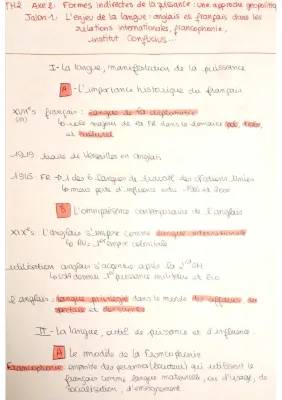 TH2 Axe 2: Formes indirectes de la puissance : une approche géopolitique
Jalon 1: L'enjeu de la langue : anglais et français dans les
relations internationales, francophonie,
institut Confucius...
I - La langue, manifestation de la puissance
A - L'importance historique du français
XVIIe s français : langue de la diplomatie
↳ rôle majeur de la FR dans le domaine
et culturel
1919 traité de Versailles en anglais
1945 FR → 1 des 6 langues de travail des Nations Unies
↳ mais perte d'influence entre et 2000
B - L'omniprésence contemporaine de l'anglais
XIXe s. L'anglais s'impose comme langue internationale
↳ RU 1er empire colonial
utilisation anglais s'accentue après la 2nd GM
↳ USA 1ère puissance militaire et éco
l'anglais : langue dans le monde des affaires, des
services et
II - La langue, outil de puissance et d'influence
A - Le modèle de la Francophonie
Francophonie : ensemble des personnes (locuteurs) qui utilisent le
français comme langue maternelle, ou d'usage, de
socialisation, d'enseignement.